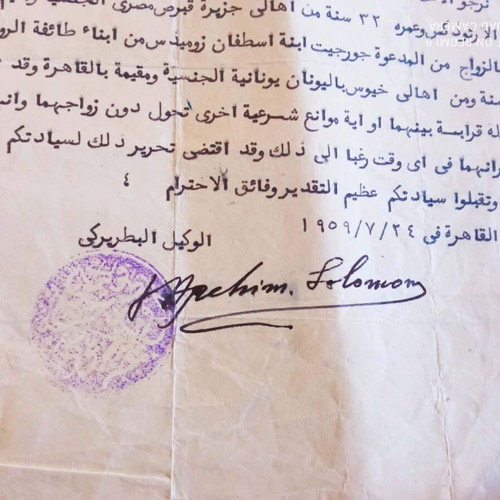 الارثوذكس وعمره ٣٢ سنة من اهالى جزيرة قبرص مصرى الجنسية
بالزواج من المدعوة جورجيت ابنة اسطفان زوميذس من ابناء طائفة الرو
سنة ومن اهالى خيوس باليونان يونانية الجنسية ومقيمة بالقاهرة وقد
له قرابسة بينهما او اية موانع شرعية اخرى تحول دون زواجهما وانه
رانهما فى اى وقت رغبا الى ذلك وقد اقتضى تحرير ذلك لسيادتكم
وتقبلوا سيادتكم عظيم التقدير وفائق الاحترام ٤
القاهرة فى ١٩٥٩/٧/٢٤
الوكيل البطريركى
Solomon